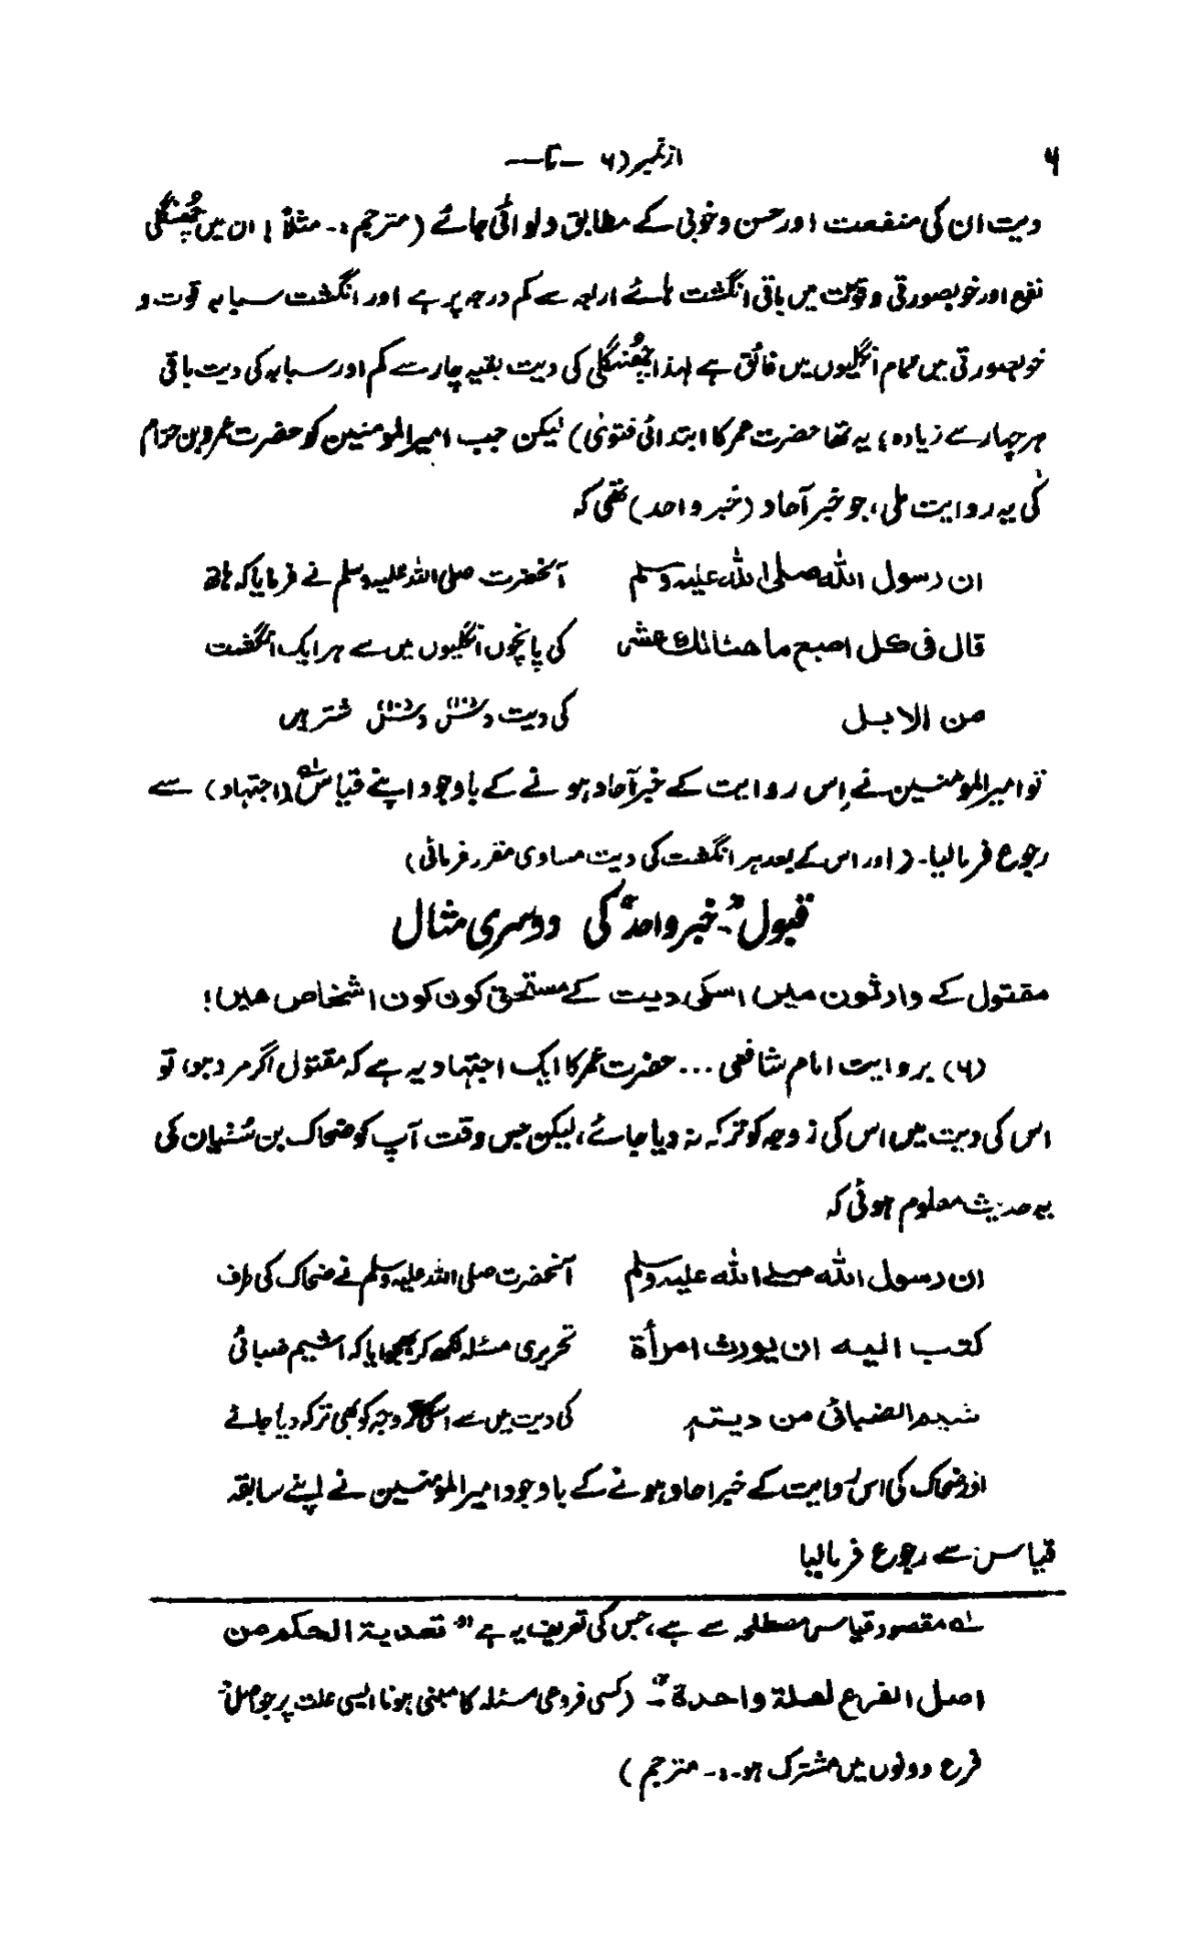 ۶
از نمبر (۶ — تا —
دیت ان کی منفعت اور حسن و خوبی کے مطابق دلوائی جائے (مترجم :- مثلاً ! ان میں چُھنگلی
نفع اور خوبصورتی و قوت میں باقی انگشت ہائے اربعہ سے کم درجہ پر ہے اور انگشت سبابہ قوت و
خوبصورتی میں تمام انگلیوں میں فائق ہے لہذا چُھنگلی کی دیت بقیہ چار سے کم اور سبابہ کی دیت باقی
ہر چہار سے زیادہ ؛ یہ تھا حضرت عمر کا ابتدائی فتویٰ) لیکن جب امیر المومنین کو حضرت عمرو بن حزام
کی یہ روایت ملی، جو خبر آحاد (خبر واحد) تھی کہ
ان رسول الله صلى الله علیہ وسلم آنحضرت صلی اللہ علیہ وسلم نے فرمایا کہ ہاتھ
قال فی کل اصبع مما ھنالک عشر کی پانچوں انگلیوں میں سے ہر ایک انگشت
من الابل کی دیت دش دش شتر ہیں
تو امیر المومنین نے اِس روایت کے خبر آحاد ہونے کے باوجود اپنے قیاس (اجتہاد) سے
رجوع فرمالیا۔ (اور اس کے بعد ہر انگشت کی دیت مساوی مقرر فرمائی)
قبول "خبر واحد" کی دوسری مثال
مقتول کے وارثون میں اسکی دیت کے مستحق کون کون اشخاص ھیں؛
(۶) بروایت امام شافعی ... حضرت عمر کا ایک اجتہاد یہ ہے کہ مقتول اگر مرد ہو، تو
اس کی دیت میں اس کی زوجہ کو ترکہ نہ دیا جائے، لیکن جس وقت آپ کو ضحاک بن سفیان کی
یہ حدیث معلوم ہوئی کہ
ان رسول الله صلے الله علیہ وسلم آنحضرت صلی اللہ علیہ وسلم نے ضحاک کی طرف
کتب الیه ان یورث امرأة تحریری مسئلہ لکھ کر بھجوایا کہ اشیم ضبائی
شیم الضبائی من دیتہ کی دیت میں سے اسکی زوجہ کو بھی ترکہ دیا جائے
اور ضحاک کی اس روایت کے خبر احاد ہونے کے باوجود امیر المؤمنین نے اپنے سابقہ
قیاس سے رجوع فرمالیا
لہ مقصود قیاس مصطلحہ سے ہے، جس کی تعریف یہ ہے "تعدیة الحکم من
اصل الفرع لعلة واحدة" (کسی فروعی مسئلہ کا مبنی ہونا ایسی علت پر جو اصل
فرع دونوں میں مشترک ہو :- مترجم)